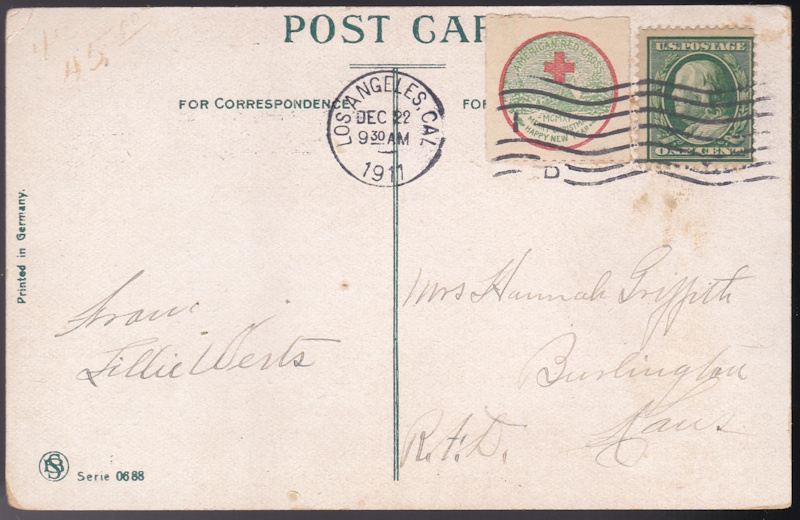 45.00
POST CAR
AMERICAN RED CROSS
MERRY CHRISTMAS
HAPPY NEW YEAR
U.S. POSTAGE
ONE CENT
FOR CORRESPONDENCE
FOR
LOS ANGELES, CAL
DEC 22
9 30 AM
1911
D
Printed in Germany.
From
Tillie Werts
Mrs Hannah Griffith
Burlington
Kans
R.F.D.
Serie 0688